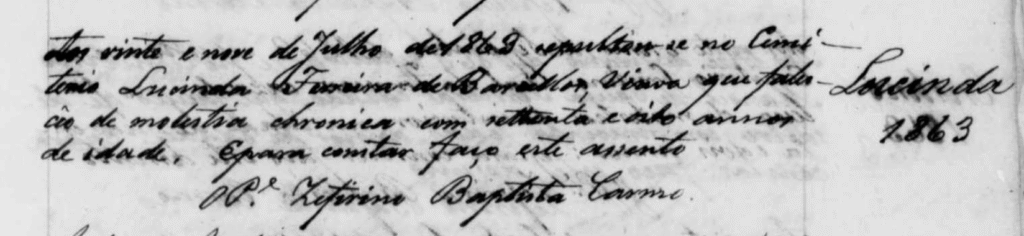 Aos vinte e nove de Julho de 1863 sepultou se no Cemi-
terio Lucinda Ferreira de Barcellos Viuva que fale-
ceo de molestia chronica com settenta e oito annos
de idade. E para constar faço este assento
Pe. Zeferino Baptista Carmo.
Lucinda
1863